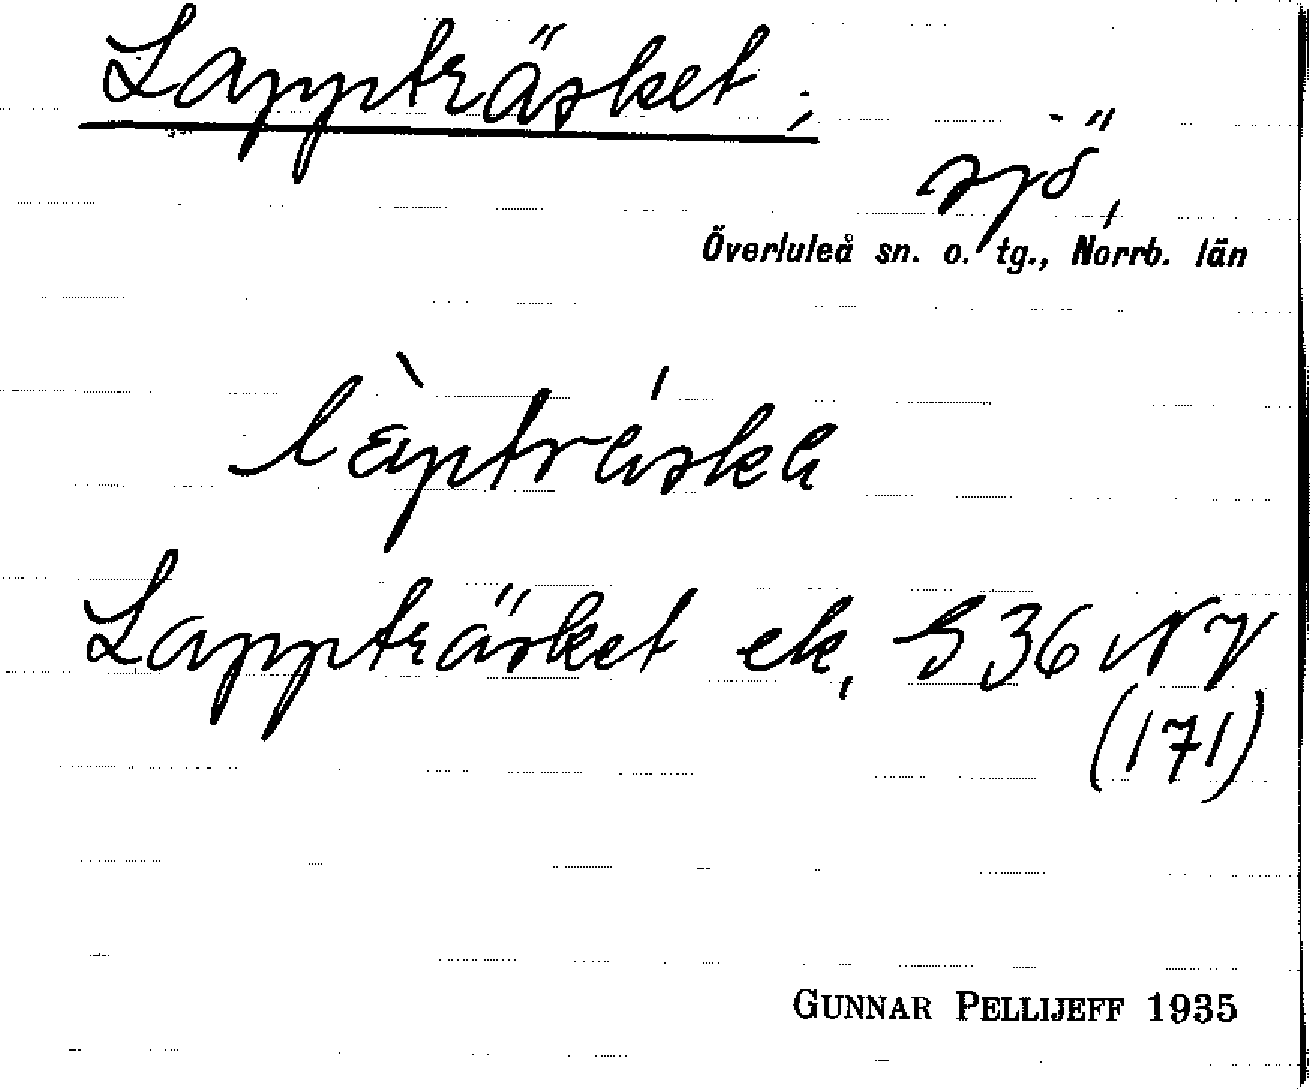 Lappträsket;
sjö,
Överluleå sn. o. tg., Norrb. län
Lappträsket ek, S 36 NV
(171)
GUNNAR PELLIJEFF 1935